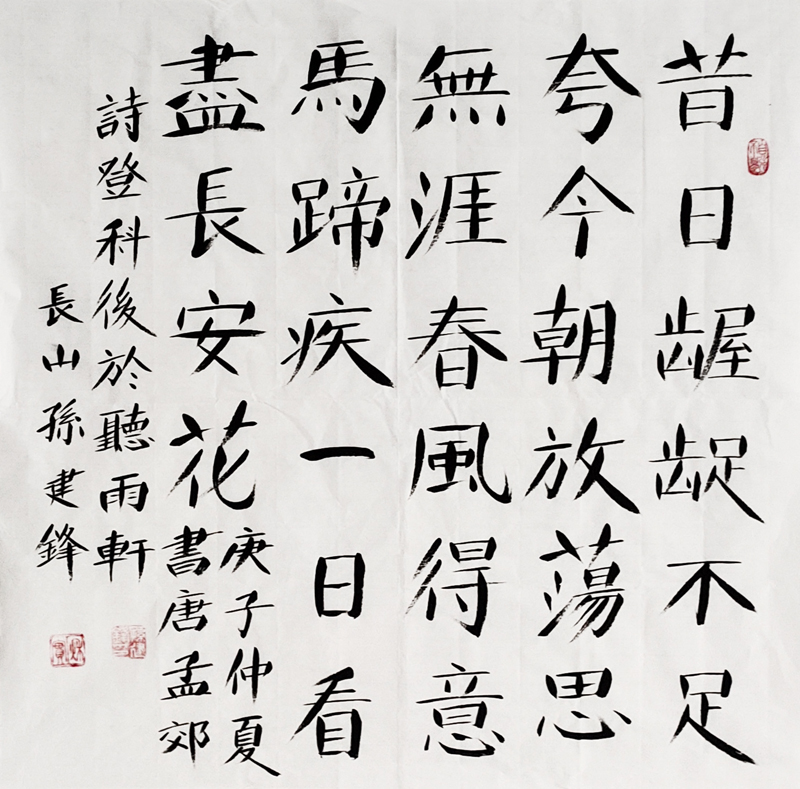 昔日龌龊不足
夸今朝放蕩思
無涯春風得意
馬蹄疾一日看
盡長安花
庚子仲夏
書唐孟郊
詩登科後於聽雨軒
長山孫建鋒